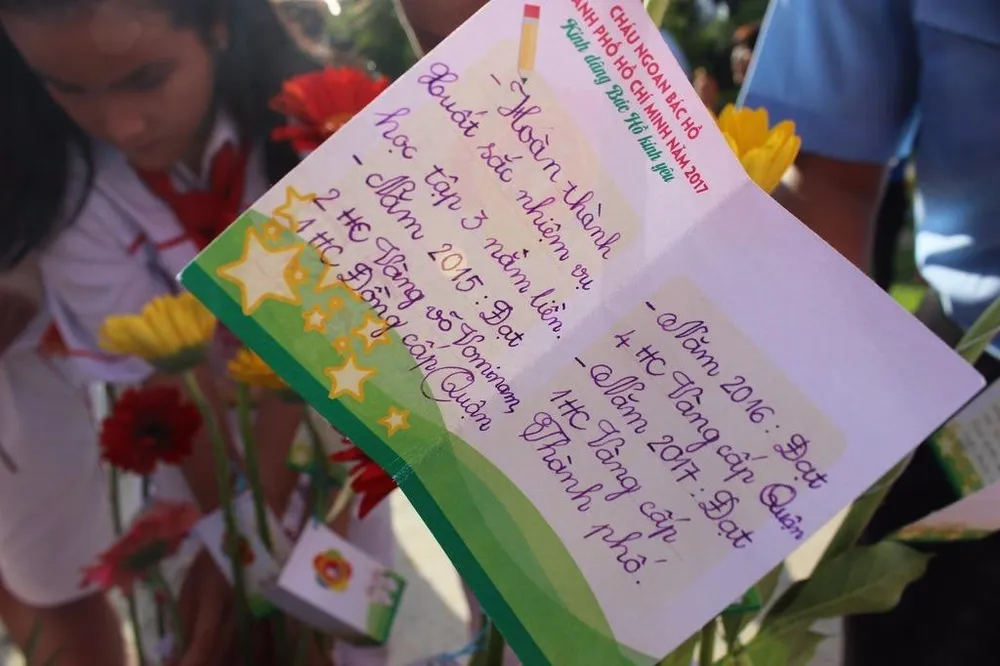 CHÁU NGOAN BÁC HỒ
THÀNH PHỐ HỒ CHÍ MINH NĂM 2017
Kính dâng Bác Hồ kính yêu
- Hoàn thành
xuất sắc nhiệm vụ
học tập 3 năm liền.
- Năm 2015: Đạt
2 HC Vàng võ Vovinam,
1 HC Đồng cấp Quận
- Năm 2016: Đạt
4 HC Vàng cấp Quận
- Năm 2017: Đạt
1 HC Vàng cấp
Thành phố.